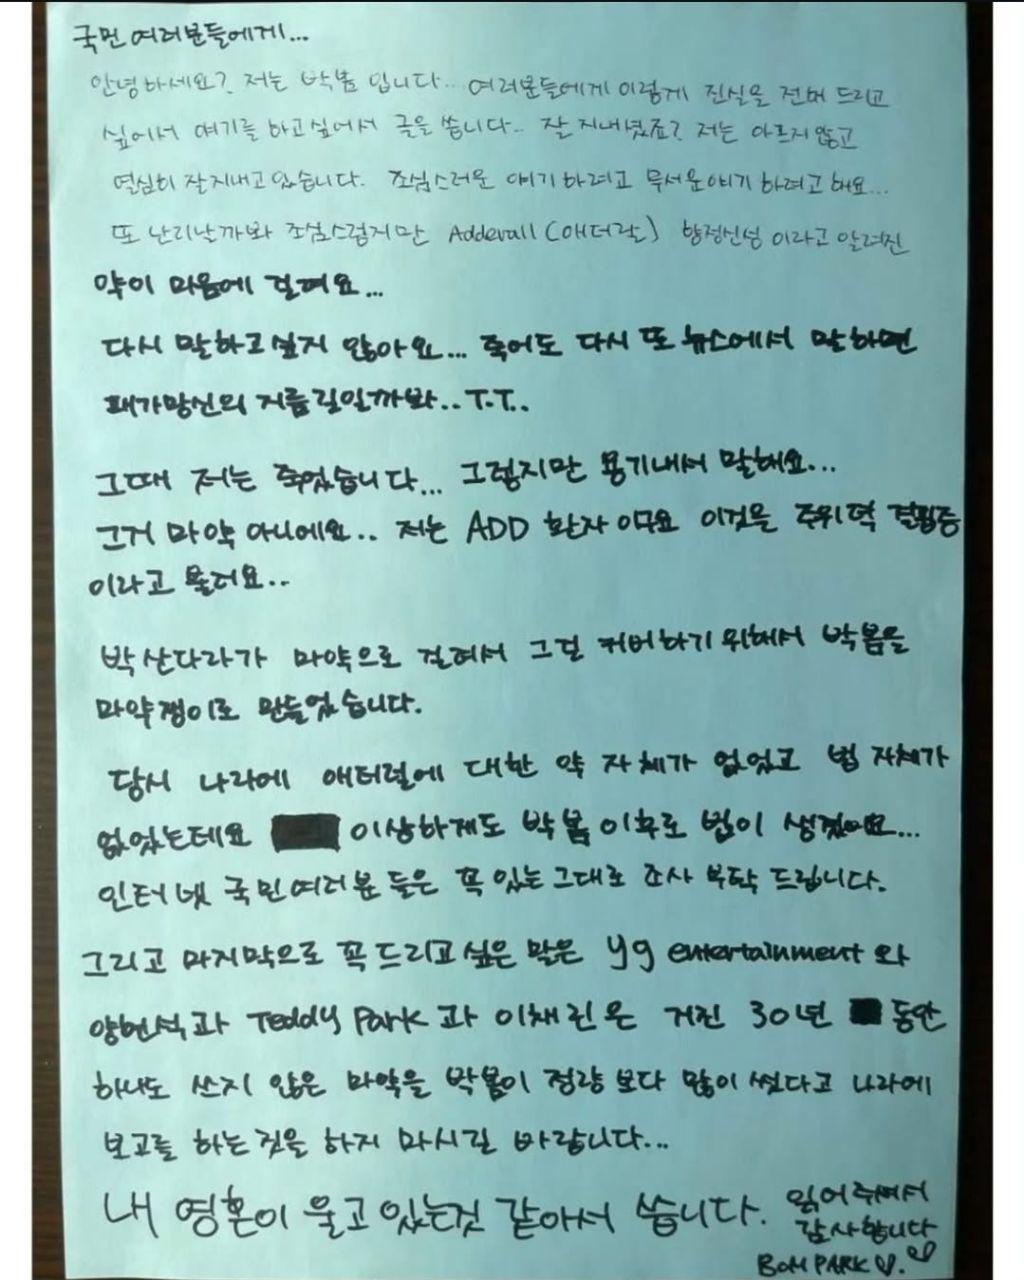 국민 여러분들에게...
안녕하세요? 저는 박봄 입니다... 여러분들에게 이렇게 진실을 전해 드리고
싶어서 얘기를 하고싶어서 글을 씁니다.. 잘 지내셨죠? 저는 아프지 않고
열심히 잘지내고 있습니다. 조심스러운 얘기하려고 무서운얘기 하려고 해요...
또 난리날까봐 조심스럽지만 Adderall (애더랄) 향정신성 이라고 알려진
약이 마음에 걸려요...
다시 말하고싶지 않아요... 죽어도 다시 또 뉴스에서 말하면
패가망신의 지름길일까봐.. T.T..
그때 저는 죽었습니다... 그렇지만 용기내서 말해요...
그거 마약 아니에요.. 저는 ADD 환자 이구요 이것을 주위력 결핍증
이라고 불러요..
박산다라가 마약으로 걸려서 그걸 커버하기 위해서 박봄을
마약쟁이로 만들었습니다.
당시 나라에 애터럴에 대한 약 자체가 없었고 법 자체가
없었는데요 이상하게도 박봄 이후로 법이 생겼어요...
인터넷 국민여러분들은 꼭 있는그대로 조사 부탁 드립니다.
그리고 마지막으로 꼭 드리고 싶은 말은 yg entertainment 와
양현석과 Teddy Park 과 이채린은 거진 30년 동안
하나도 쓰지 않은 마약을 박봄이 정량 보다 많이 썼다고 나라에
보고를 하는것을 하지 마시길 바랍니다...
내 영혼이 울고 있는것 같아서 씁니다.
읽어주셔서
감사합니다
BOM PARK ♡. ♡